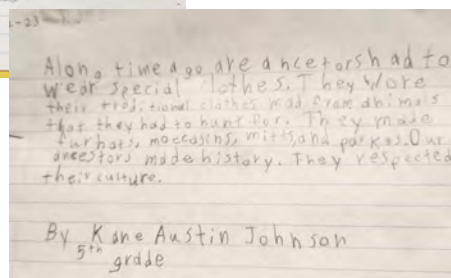 -23
Along time ago are ancetors had to
wear special clothes. They wore
their traditional clothes mad from animals
that they had to hunt for. They made
fur hats, moccasins, mitts, and parkas. Our
ancestors made history. They respected
their culture.
By Kane Austin Johnson
5th
grade